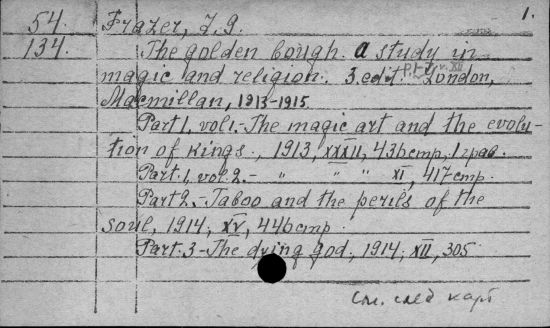 1.
54. Frazer, J. G.
134. The golden bough. A study in
magic and religion. 3. edit. London,
Macmillan, 1913-1915
Part 1, vol 1.-The magic art and the evolu-
tion of kings., 1913, XXXII, 436 cmp, 1 zpaф.
Part. 1, vol. 2.- " " " XI, 417 cmp.
Part 2.-Taboo and the perils of the
soul, 1914, XV, 446 cmp
Part. 3-The dying god., 1914, XII, 305
См. след карт